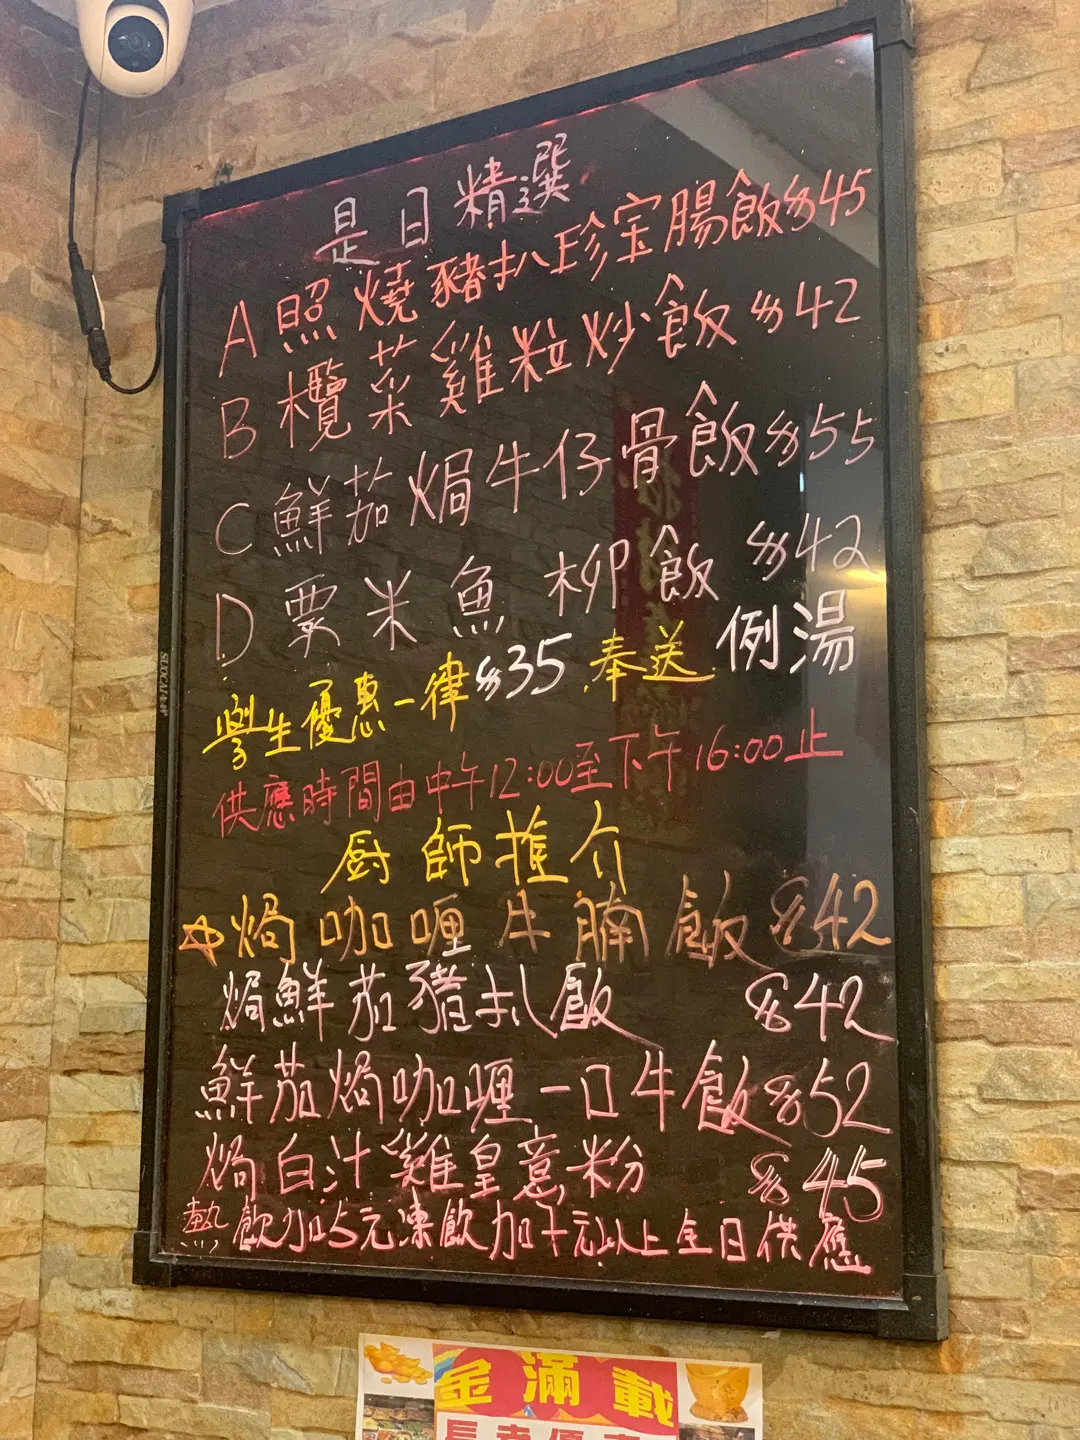 是日精選
A 照燒豬扒珍宝腸飯$45
B 欖菜雞粒炒飯$42
C 鮮茄焗牛仔骨飯$55
D 粟米魚柳飯$42
學生優惠一律$35奉送例湯
供應時間由中午12:00至下午16:00止
厨師推介
☆焗咖喱牛腩飯$42
焗鮮茄豬扒飯 $42
鮮茄焗咖喱一口牛飯$52
焗白汁雞皇意粉 $45
熱飲加5元凍飲加十元以上全日供應
金滿載